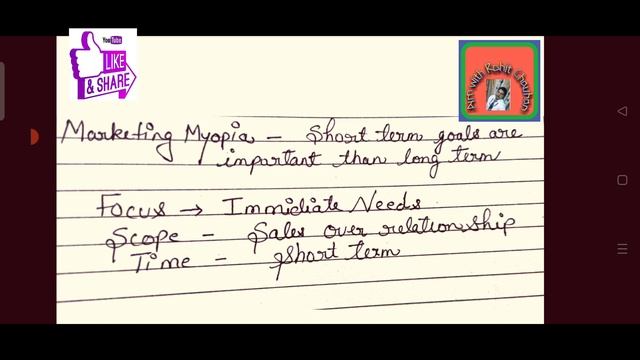 YouTube
LIKE
& SHARE
Aim With Rohit Chauhan
Marketing Myopia – Short term goals are
important than long term
Focus → Immidiate Needs
Scope – Sales over relationship
Time – Short term